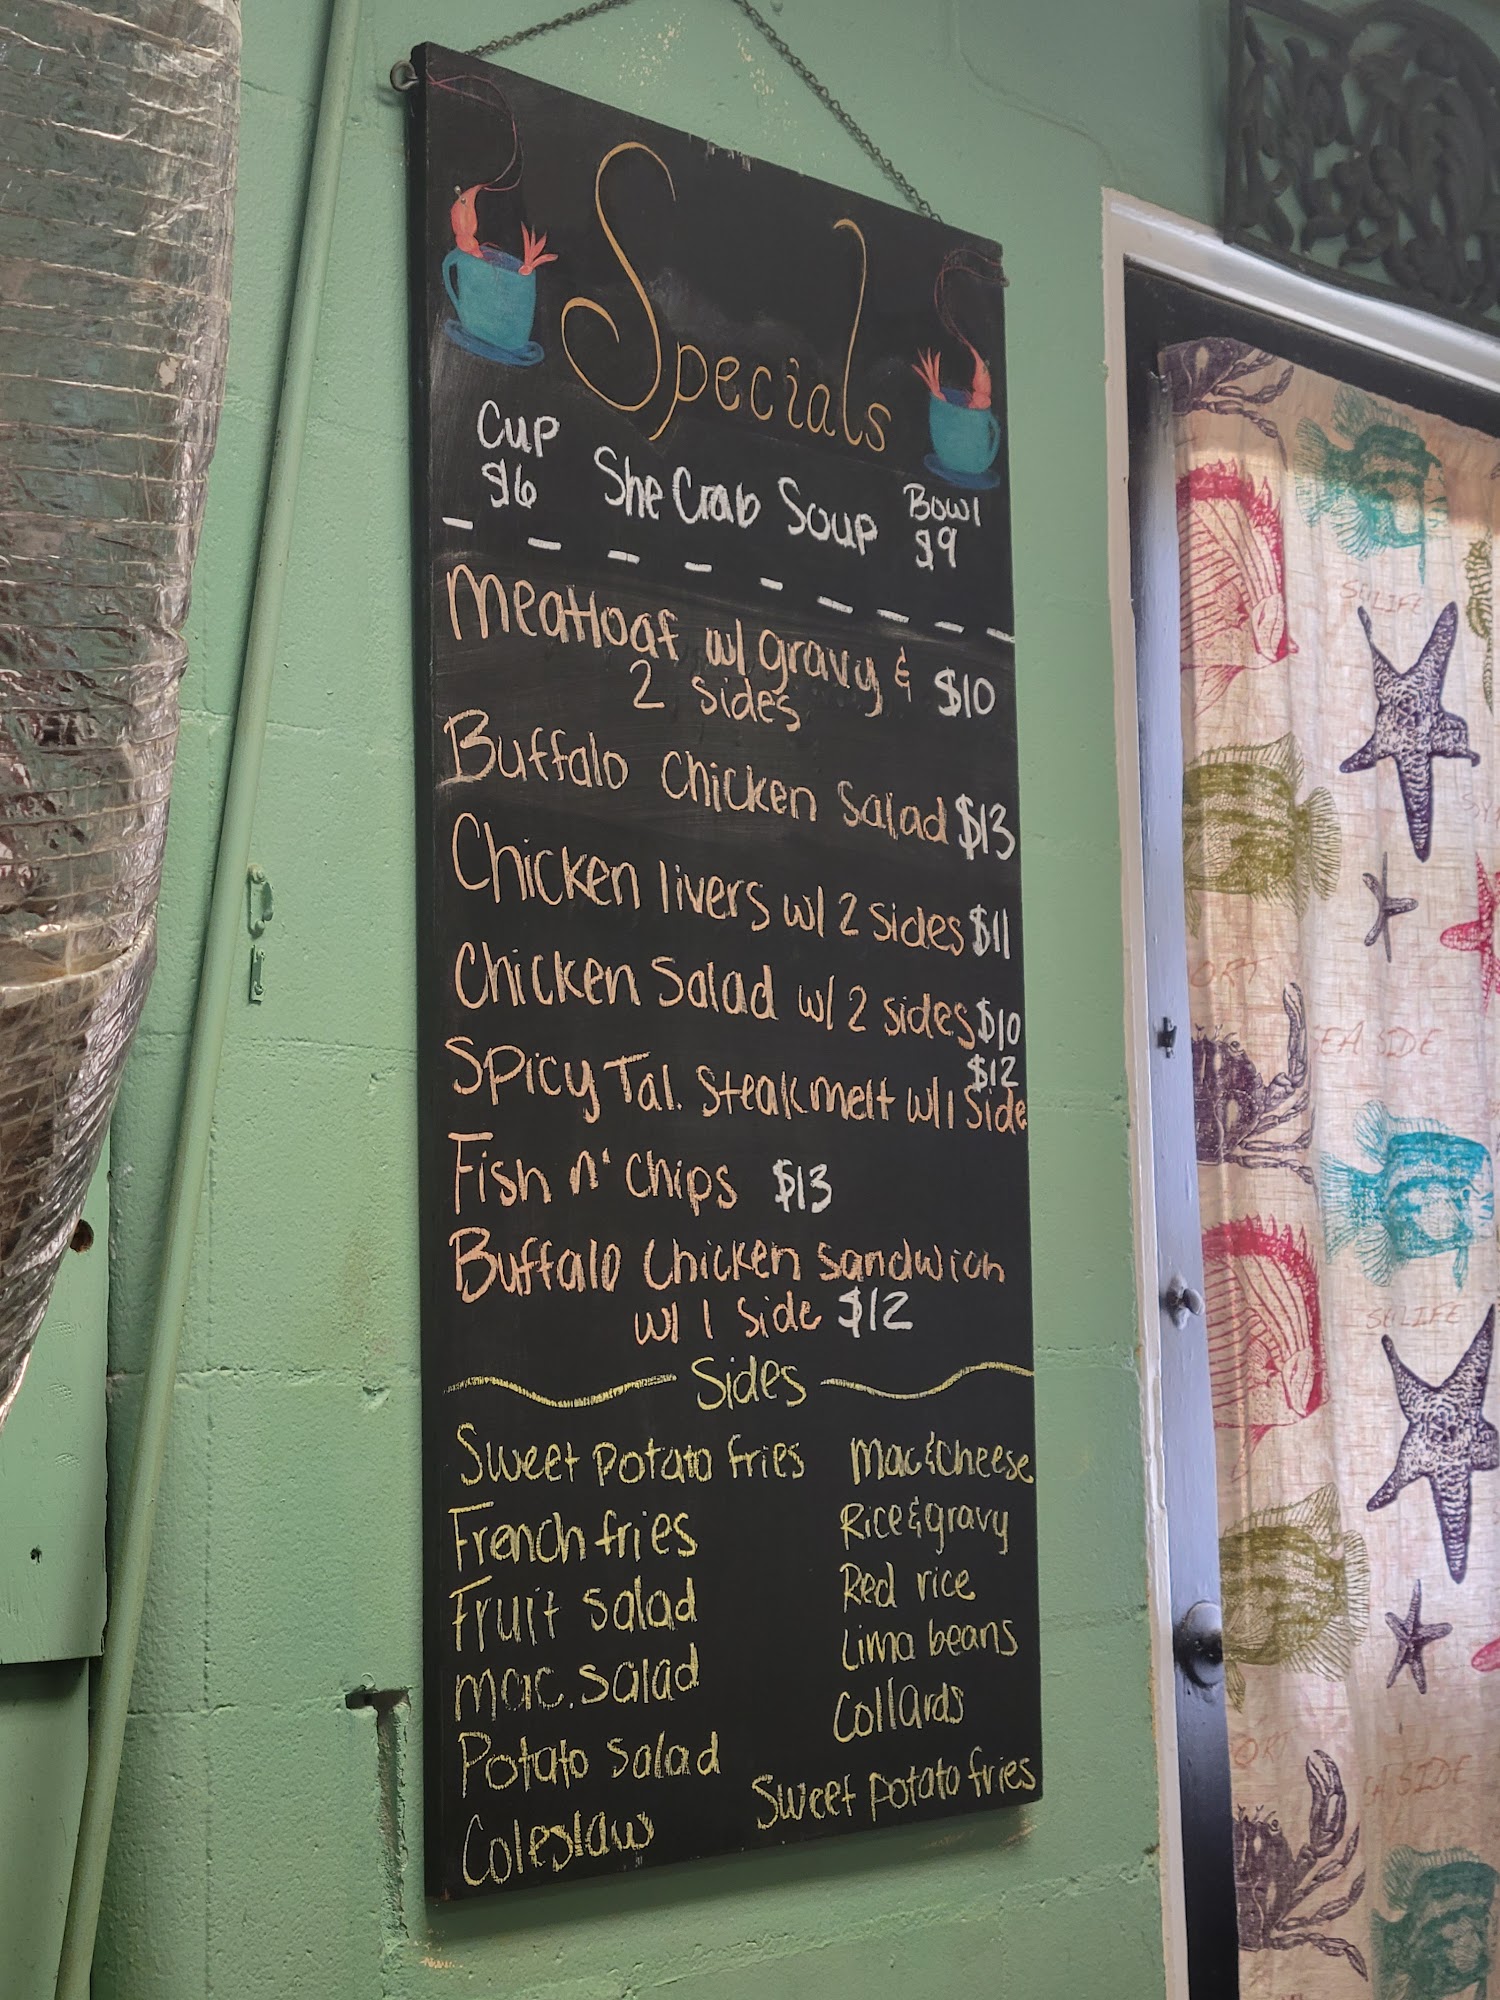 Specials
Cup She Crab Soup Bowl
$6 $9
Meatloaf w/ gravy & $10
2 sides
Buffalo Chicken Salad $13
Chicken livers w/ 2 sides $11
Chicken Salad w/ 2 sides $10
$12
Spicy Tal. Steak melt w/ 1 side
Fish n' Chips $13
Buffalo Chicken sandwich
w/ 1 side $12
Sides
Sweet potato fries Mac & Cheese
French fries Rice & gravy
Fruit Salad Red rice
Mac. Salad Lima beans
Potato Salad Collards
Coleslaw Sweet potato fries
SEALIFE
SEA SIDE
SEALIFE